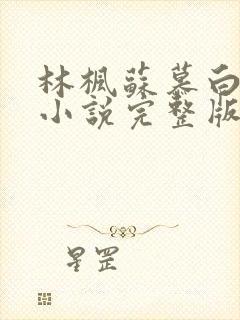 林楓蘇慕白
小說完整版
星罡